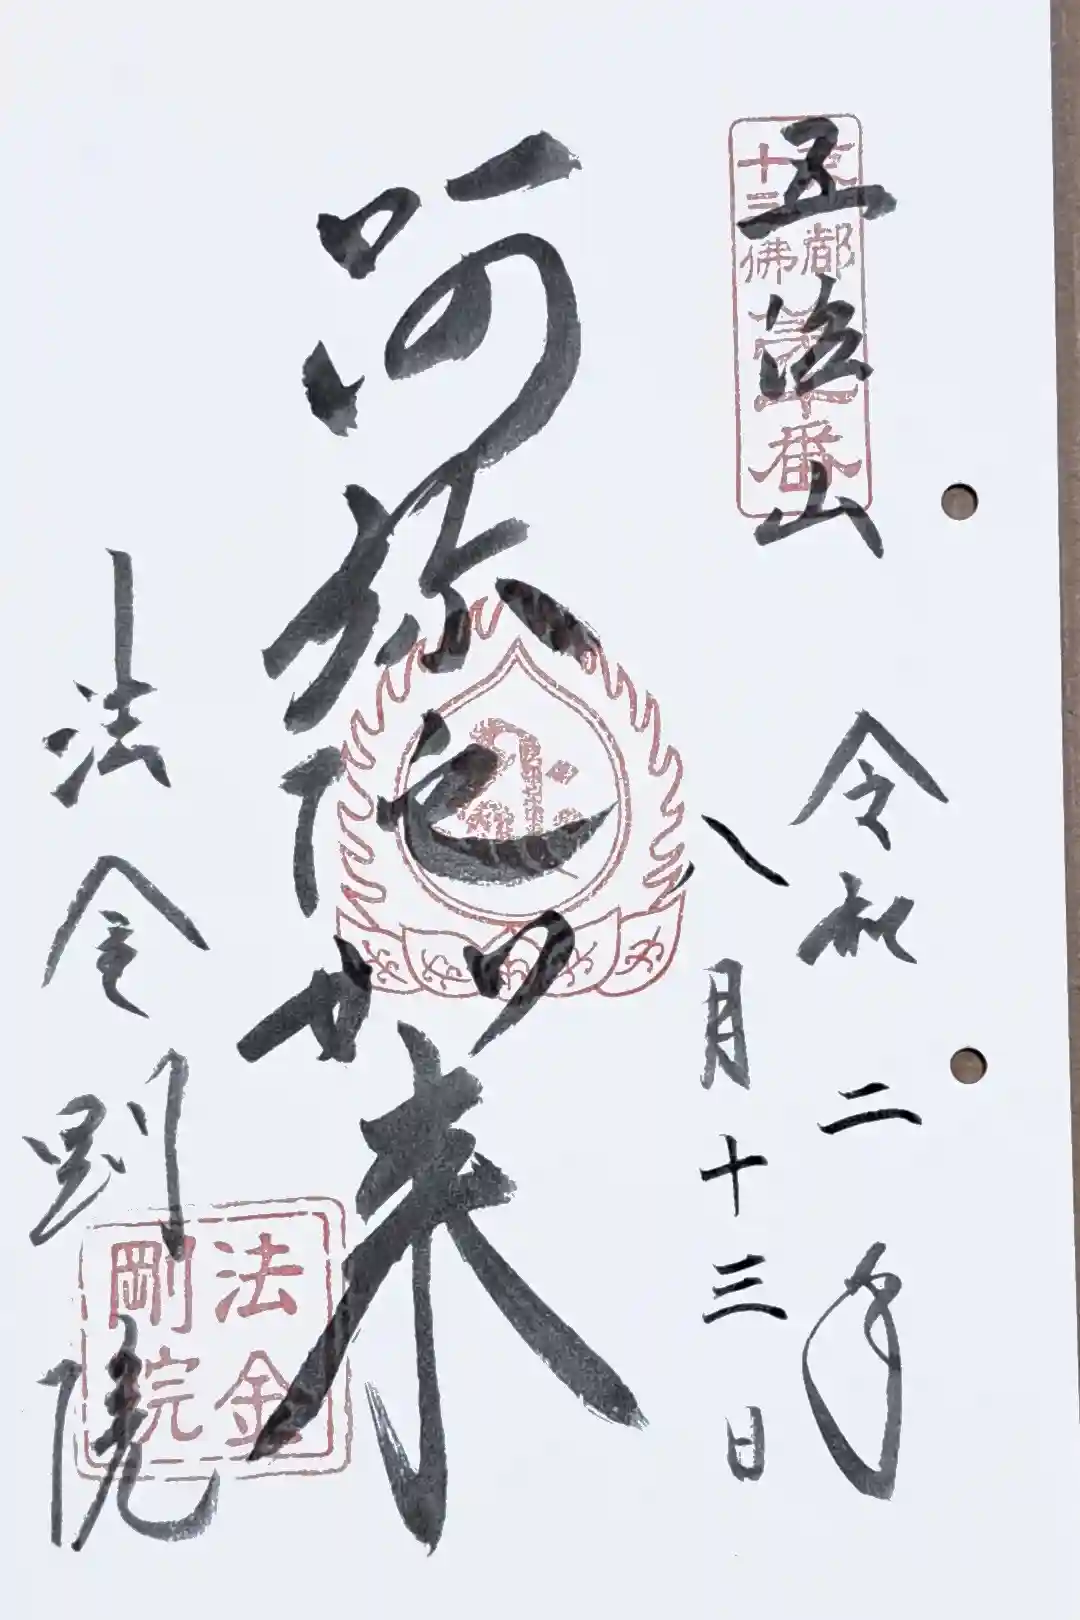 五位山
京都
十三佛
第十番
令和二年
八月十三日
阿弥陀如来
法金剛院
法金
剛院